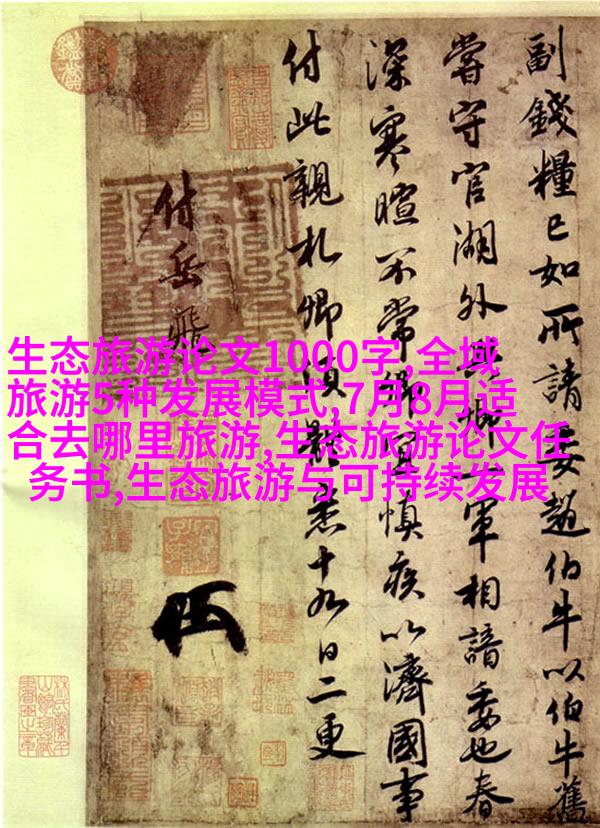 生态旅游论文1000字,全域
旅游5种发展模式,7月8月适
合去哪里旅游,生态旅游论文任
务书,生态旅游与可持续发展
副錢糧已如所請委趙伯牛以伯牛舊
嘗守官湖外與卿一軍相諳委也春
深寒暄不常卿宜慎疾以濟國事
付此親札卿須體悉十九日二更
付岳飛